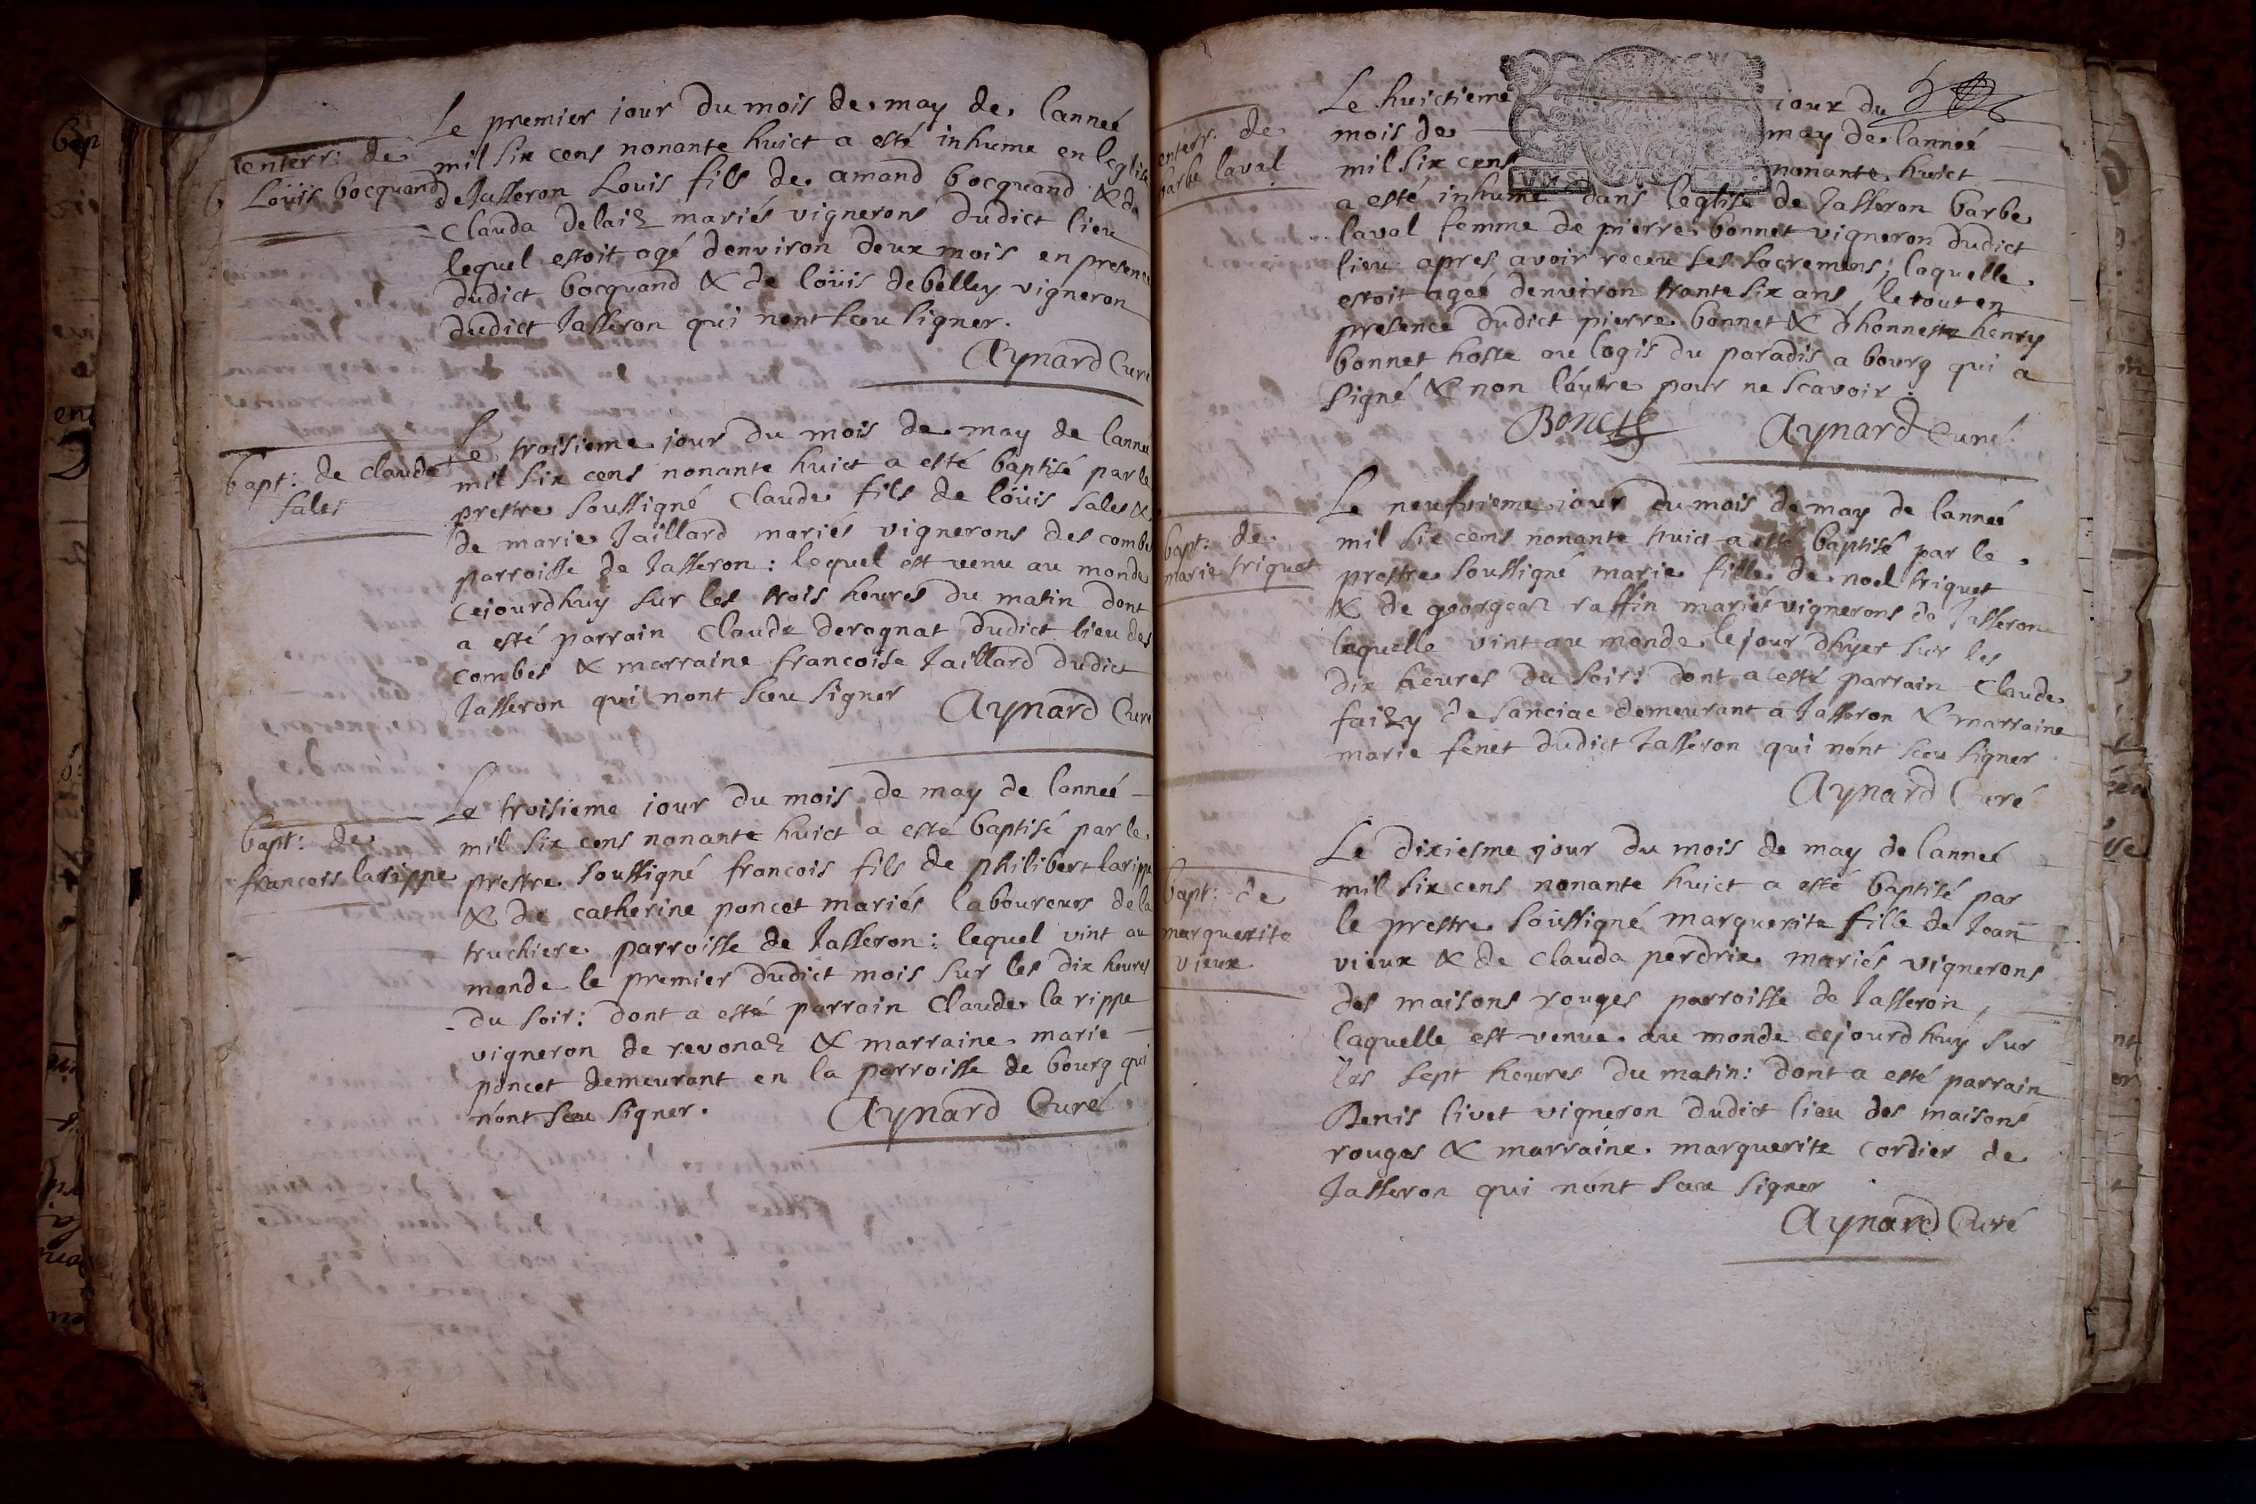 enterr: de
Loüis bocquand
Le premier iour du mois de may de lanneé
mil six cens nonante huict a esté inhume en leglise
de Jasseron Louis fils de amand bocquand & de
Clauda delaiz mariés vignerons dudict lieu
lequel estoit agé denviron deux mois en presence
dudict bocquand & de loüis debelley vigneron
dudict Jasseron qui nont sceu signer.
Aynard Curé
bapt: de claude
sales
Le troisieme iour du mois de may de lanneé
mil six cens nonante huict a esté baptisé par le
prestre soussigné Claude fils de loüis sales &
de marie Jaillard mariés vignerons des combes
parroisse de Jasseron: lequel est venu au monde
cejourdhuy sur les trois heures du matin dont
a esté parrain Claude derognat dudict lieu des
combes & marraine francoise Jaillard dudict
Jasseron qui nont sceu signer
Aynard Curé
bapt: de
francois larippe
Le troisieme iour du mois de may de lanneé
mil six cens nonante huict a esté baptisé par le
prestre soussigné francois fils de philibert larippe
& de catherine poncet mariés laboureurs de la
truchiere parroisse de Jasseron: lequel vint au
monde le premier dudict mois sur les dix heures
du soir: dont a esté parrain Claude la rippe
vigneron de revonaz & marraine marie
poncet demeurant en la parroisse de bourg qui
n'ont sceu signer.
Aynard Curé
enterr: de
barbe laval
Le huictieme iour du
mois de may de lanneé
mil six cens nonante huict
a esté inhume dans leglise de Jasseron barbe
laval femme de pierre bonnet vigneron dudict
lieu apres avoir receu ses sacremens; laquelle
estoit ageé denviron trante six ans, le tout en
presence dudict pierre bonnet & dhonneste henry
bonnet hoste au logis du paradis a bourg qui a
signé & non láutre pour ne scavoir.
Aynard Curé
bapt: de
marie triquet
Le neufvieme iour du mois de may de lanneé
mil six cens nonante huict a esté baptisé par le
prestre soussigné marie fille de noel triquet
& de georgeaz raffin mariés vignerons de Jasseron
laquelle vint au monde le jour dhyer sur les
dix heures du soir: dont a esté parrain Claude
faizy de sanciac demeurant a Jasseron & marraine
marie fenet dudict Jasseron qui nónt sceu signer
Aynard Curé
bapt: de
marguerite
vieux
Le dixiesme jour du mois de may de lanneé
mil six cens nonante huict a esté baptisé par
le prestre soüssigné marguerite fille de Joan
vieux & de Clauda perdrix mariés vignerons
des maisons rouges parroisse de Jasseron,
laquelle est venue au monde cejourdhuy sur
les sept heures du matin: dont a esté parrain
Denis livet vigneron dudict lieu des maisons
rouges & marraine marguerite Cordier de
Jasseron qui nónt sceu signer
Aynard Curé